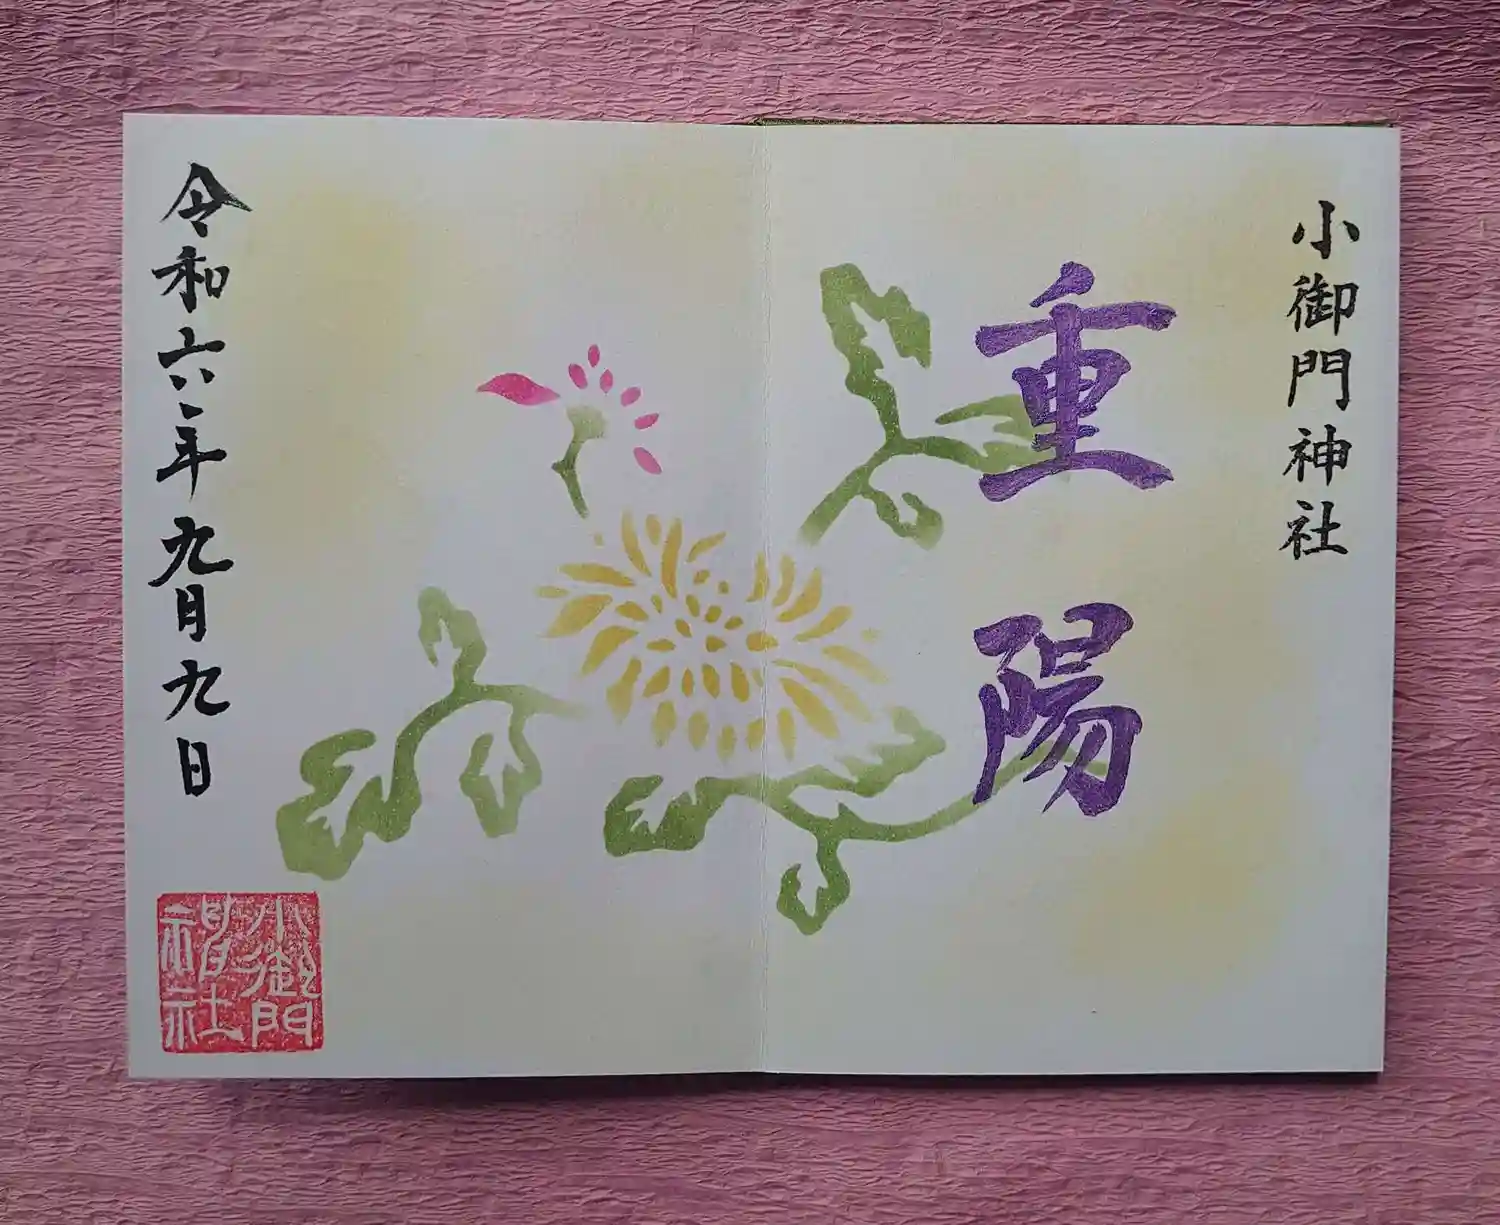 小御門神社
重陽
令和六年九月九日
小御門
神社